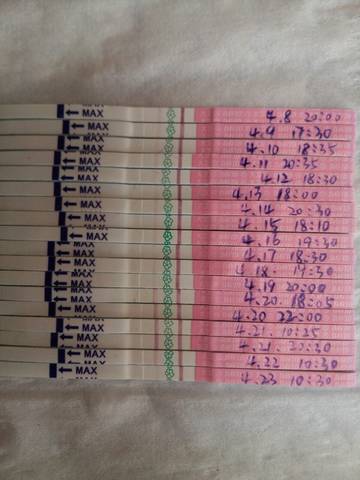 MAX 4.8 20:00
MAX 4.9 17:30
MAX 4.10 18:35
MAX 4.11 20:35
MAX 4.12 18:30
MAX 4.13 18:00
MAX 4.14 20:30
MAX 4.15 18:10
MAX 4.16 19:30
MAX 4.17 18:30
MAX 4.18 19:30
MAX 4.19 20:00
MAX 4.20 18:05
MAX 4.20 22:00
MAX 4.21 10:25
MAX 4.21 20:30
MAX 4.22 10:30
MAX 4.23 10:30